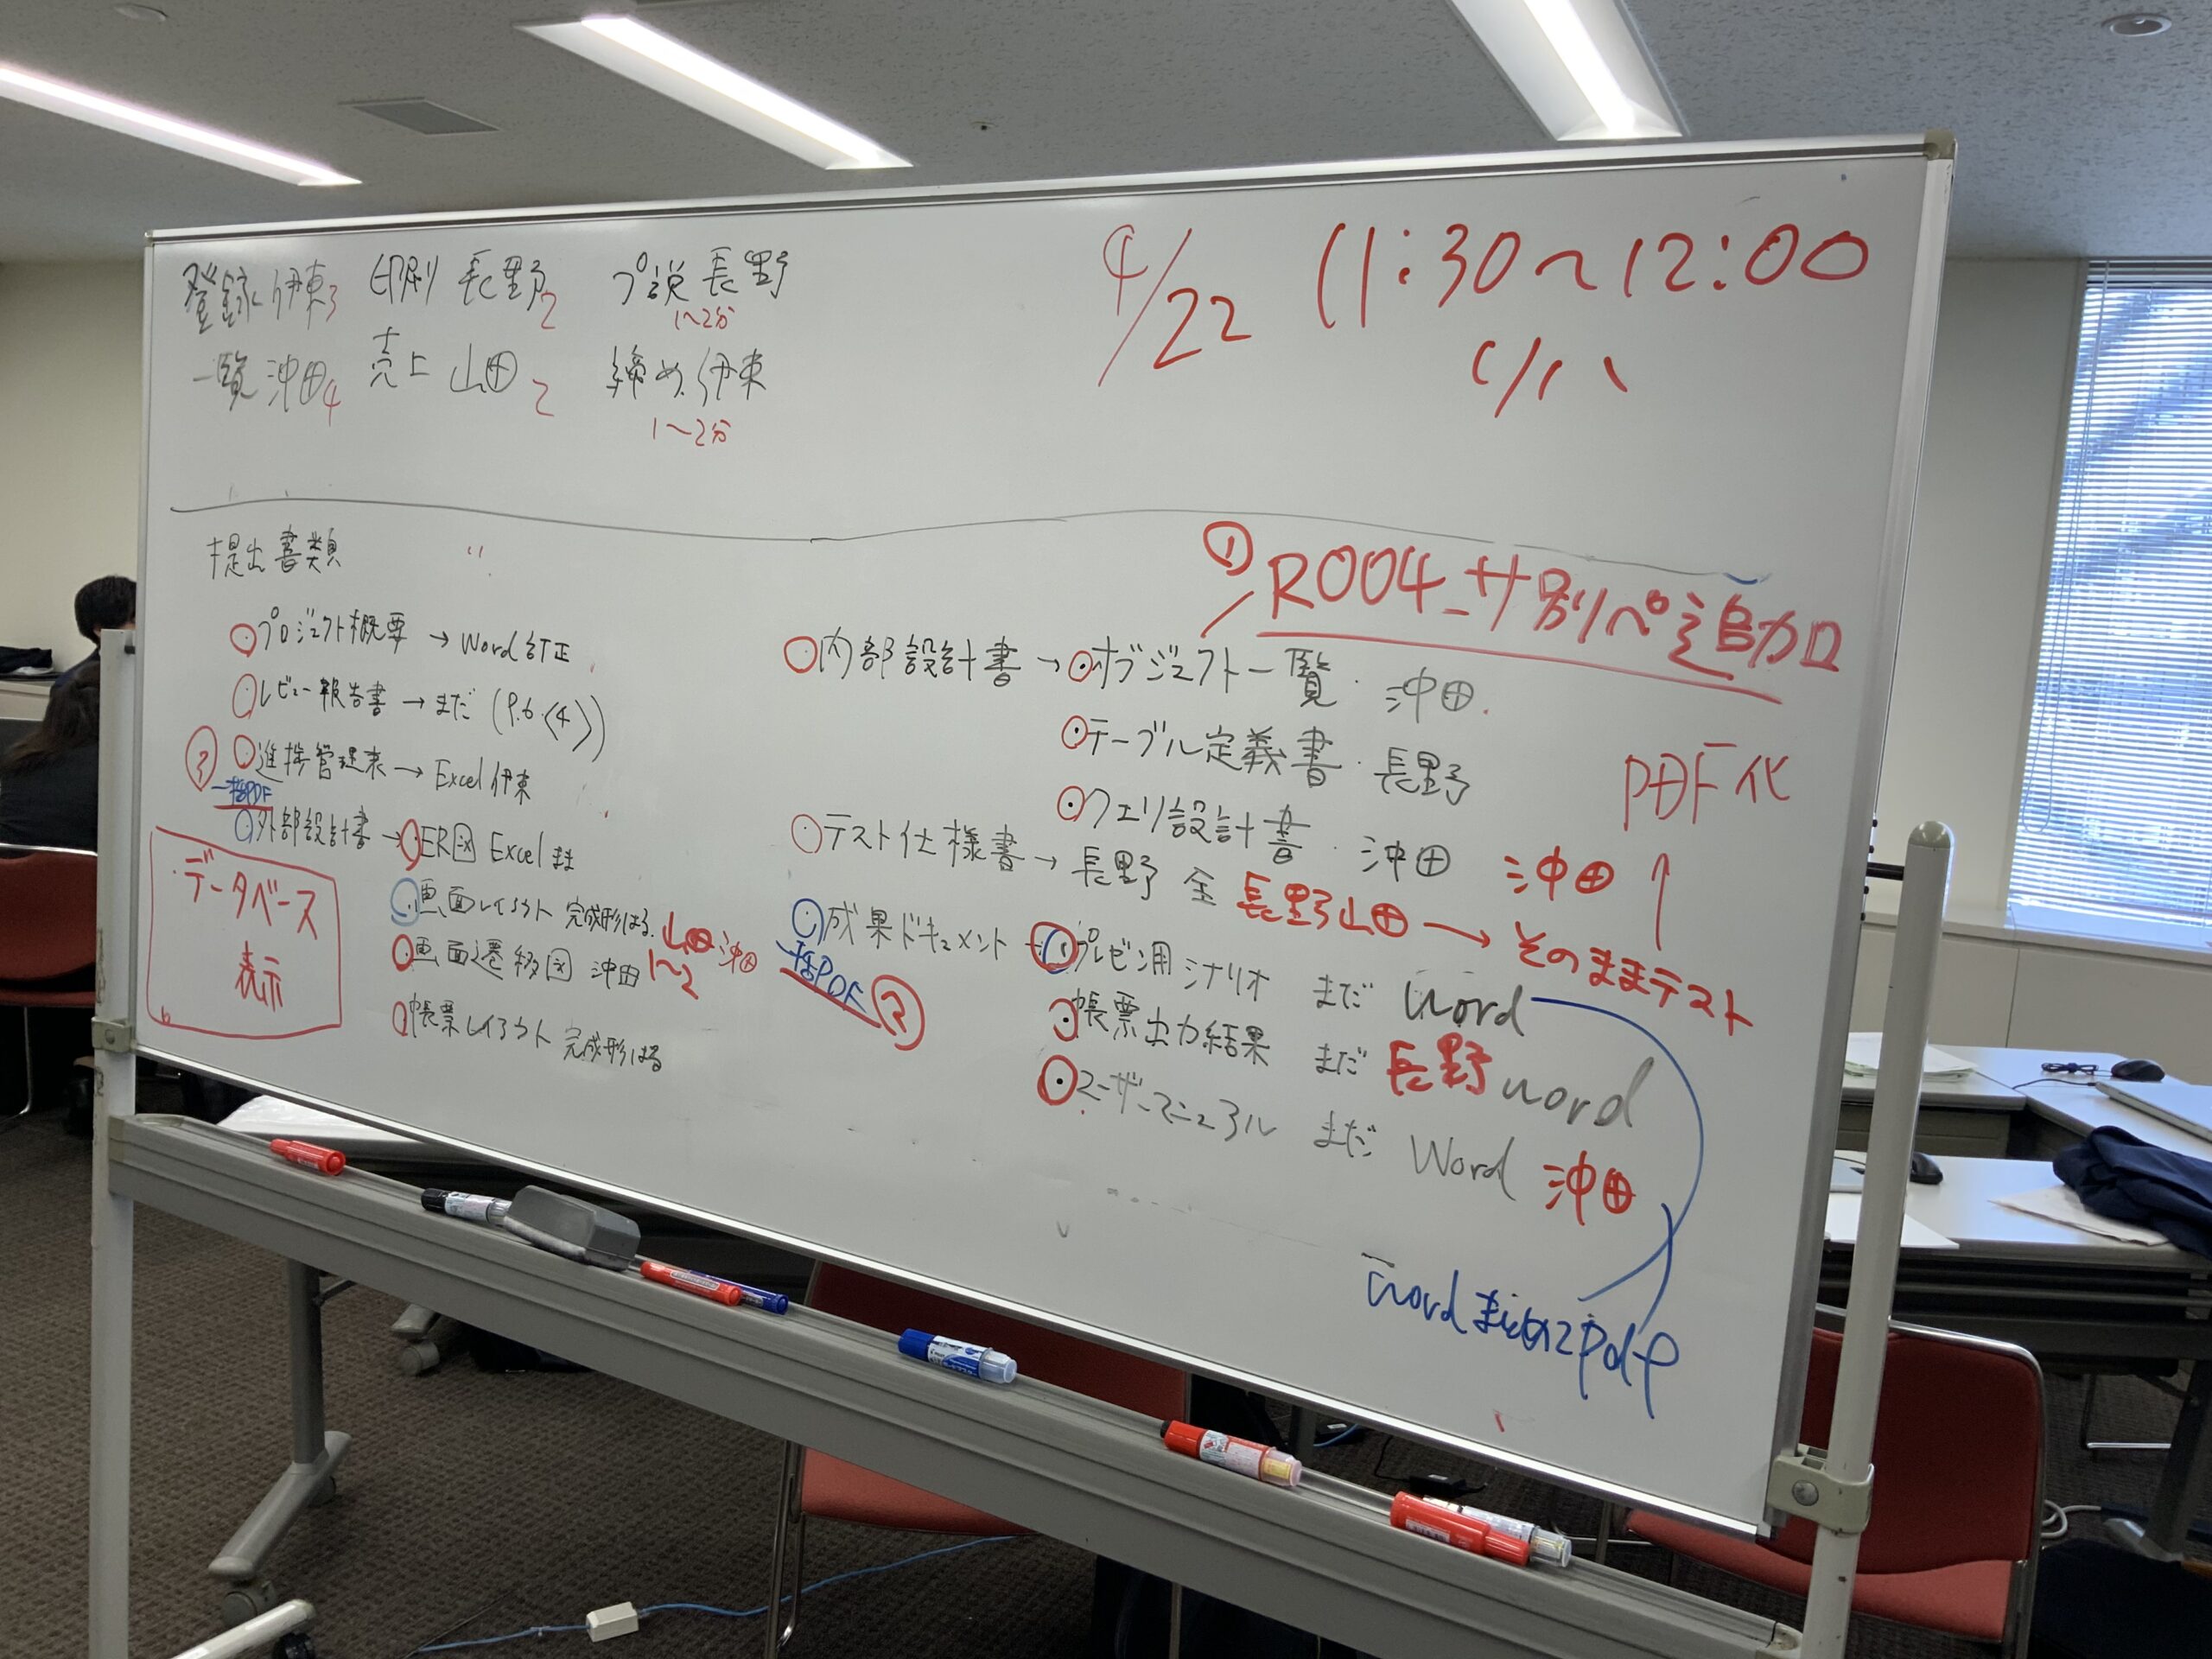 登録 伊東3 印刷 長野2 プ説 長野
1〜2分
一覧 沖田4 売上 山田 2 締め 伊東
1〜2分
4/22 11:30〜12:00
提出書類
プロジェクト概要 → Word訂正
レビュー報告書 → まだ (P.6 〈4〉)
進捗管理表 → Excel 伊東
一括PDF
外部設計書 → ER図 Excel まま
画面レイアウト 完成形はる 山田 沖田
画面遷移図 沖田 1〜2
帳票レイアウト 完成形はる
データベース
表示
① R004_サ別ペ追加
内部設計書 → オブジェクト一覧・沖田
テーブル定義書・長野
クエリ設計書・沖田
PDF化
沖田 ↑
テスト仕様書 → 長野 全 長野山田 → そのままテスト
成果ドキュメント プレゼン用シナリオ まだ word
一括PDF ②
帳票出力結果 まだ 長野 word
ユーザーマニュアル まだ Word 沖田
wordまとめてpdf